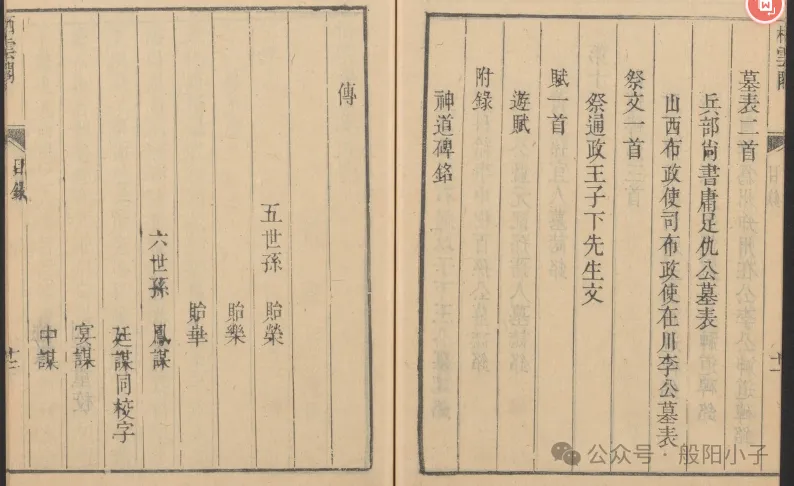 墓表二首
兵部尚書庸足仇公墓表
山西布政使司布政使在川李公墓表
祭文一首
祭通政王子下先生文
賦一首
遊賦
附錄
神道碑銘
傳
五世孫 貽榮
貽樂
貽華
六世孫 鳳謀
廷謀同校字
宴謀
中謀
雲閣
目錄
十二
公众号·般阳小子